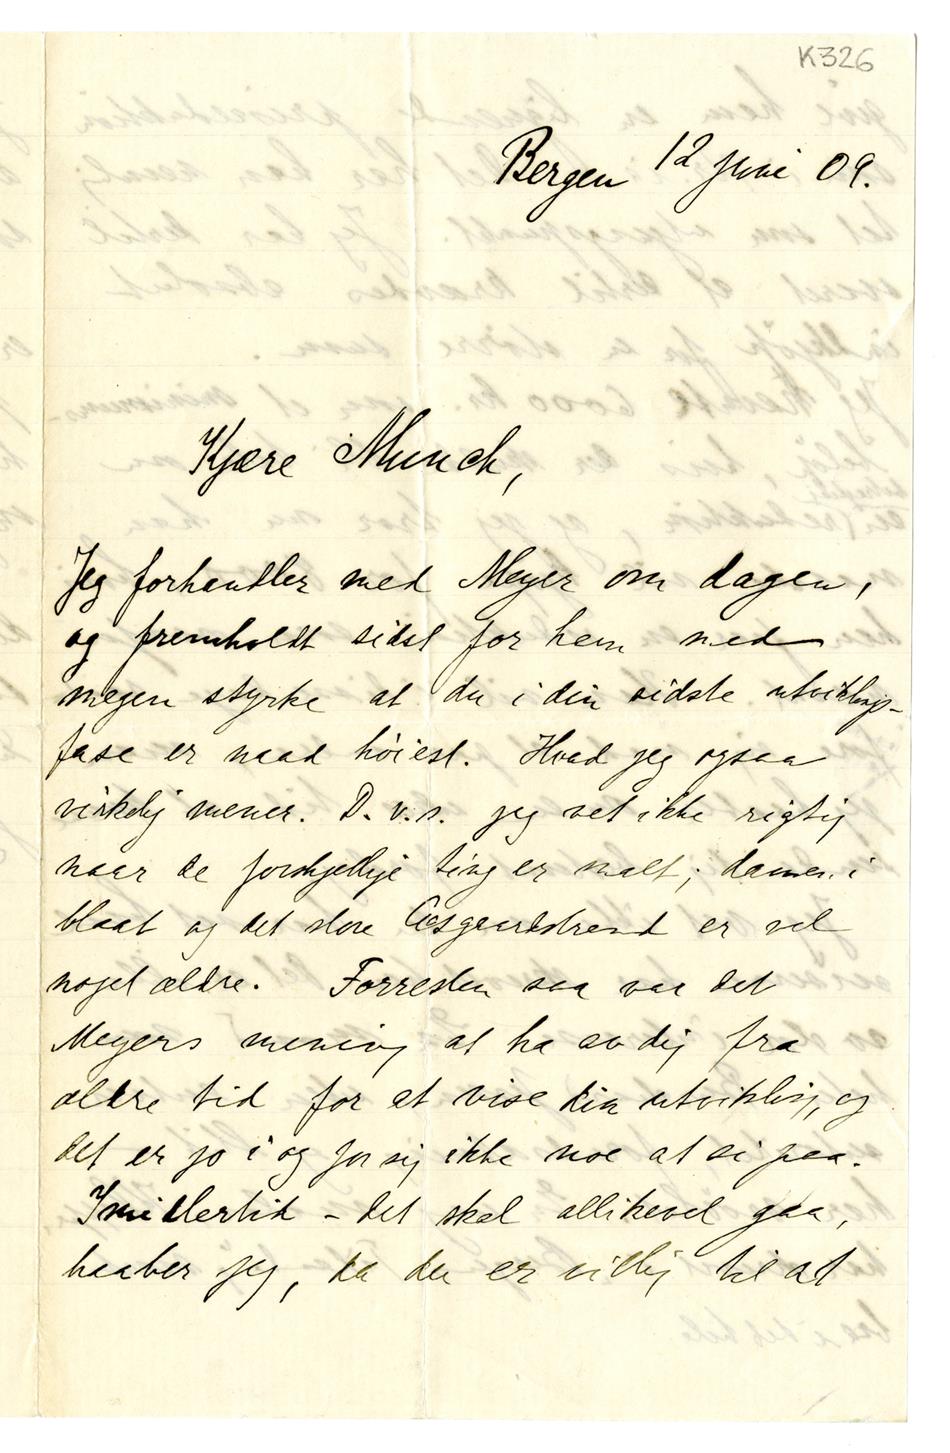 K326
Bergen 12 juni 09.
Kjære Munch,
Jeg forhandler med Meyer om dagen,
og fremholdt sidst for ham med
megen styrke at du i din sidste utviklings-
fase er naad høiest. Hvad jeg ogsaa
virkelig mener. D.v.s. jeg vet ikke rigtig
naar de forskjellige ting er malt; damen i
blaat og det store Aasgaardstrand er vel
noget ældre. Forresten saa var det
Meyers mening at ha av dig fra
ældre tid for at vise din utvikling, og
det er jo i og for sig ikke noe at si paa.
Imidlertid – det skal allikevel gaa,
haaber jeg, da du er villig til at